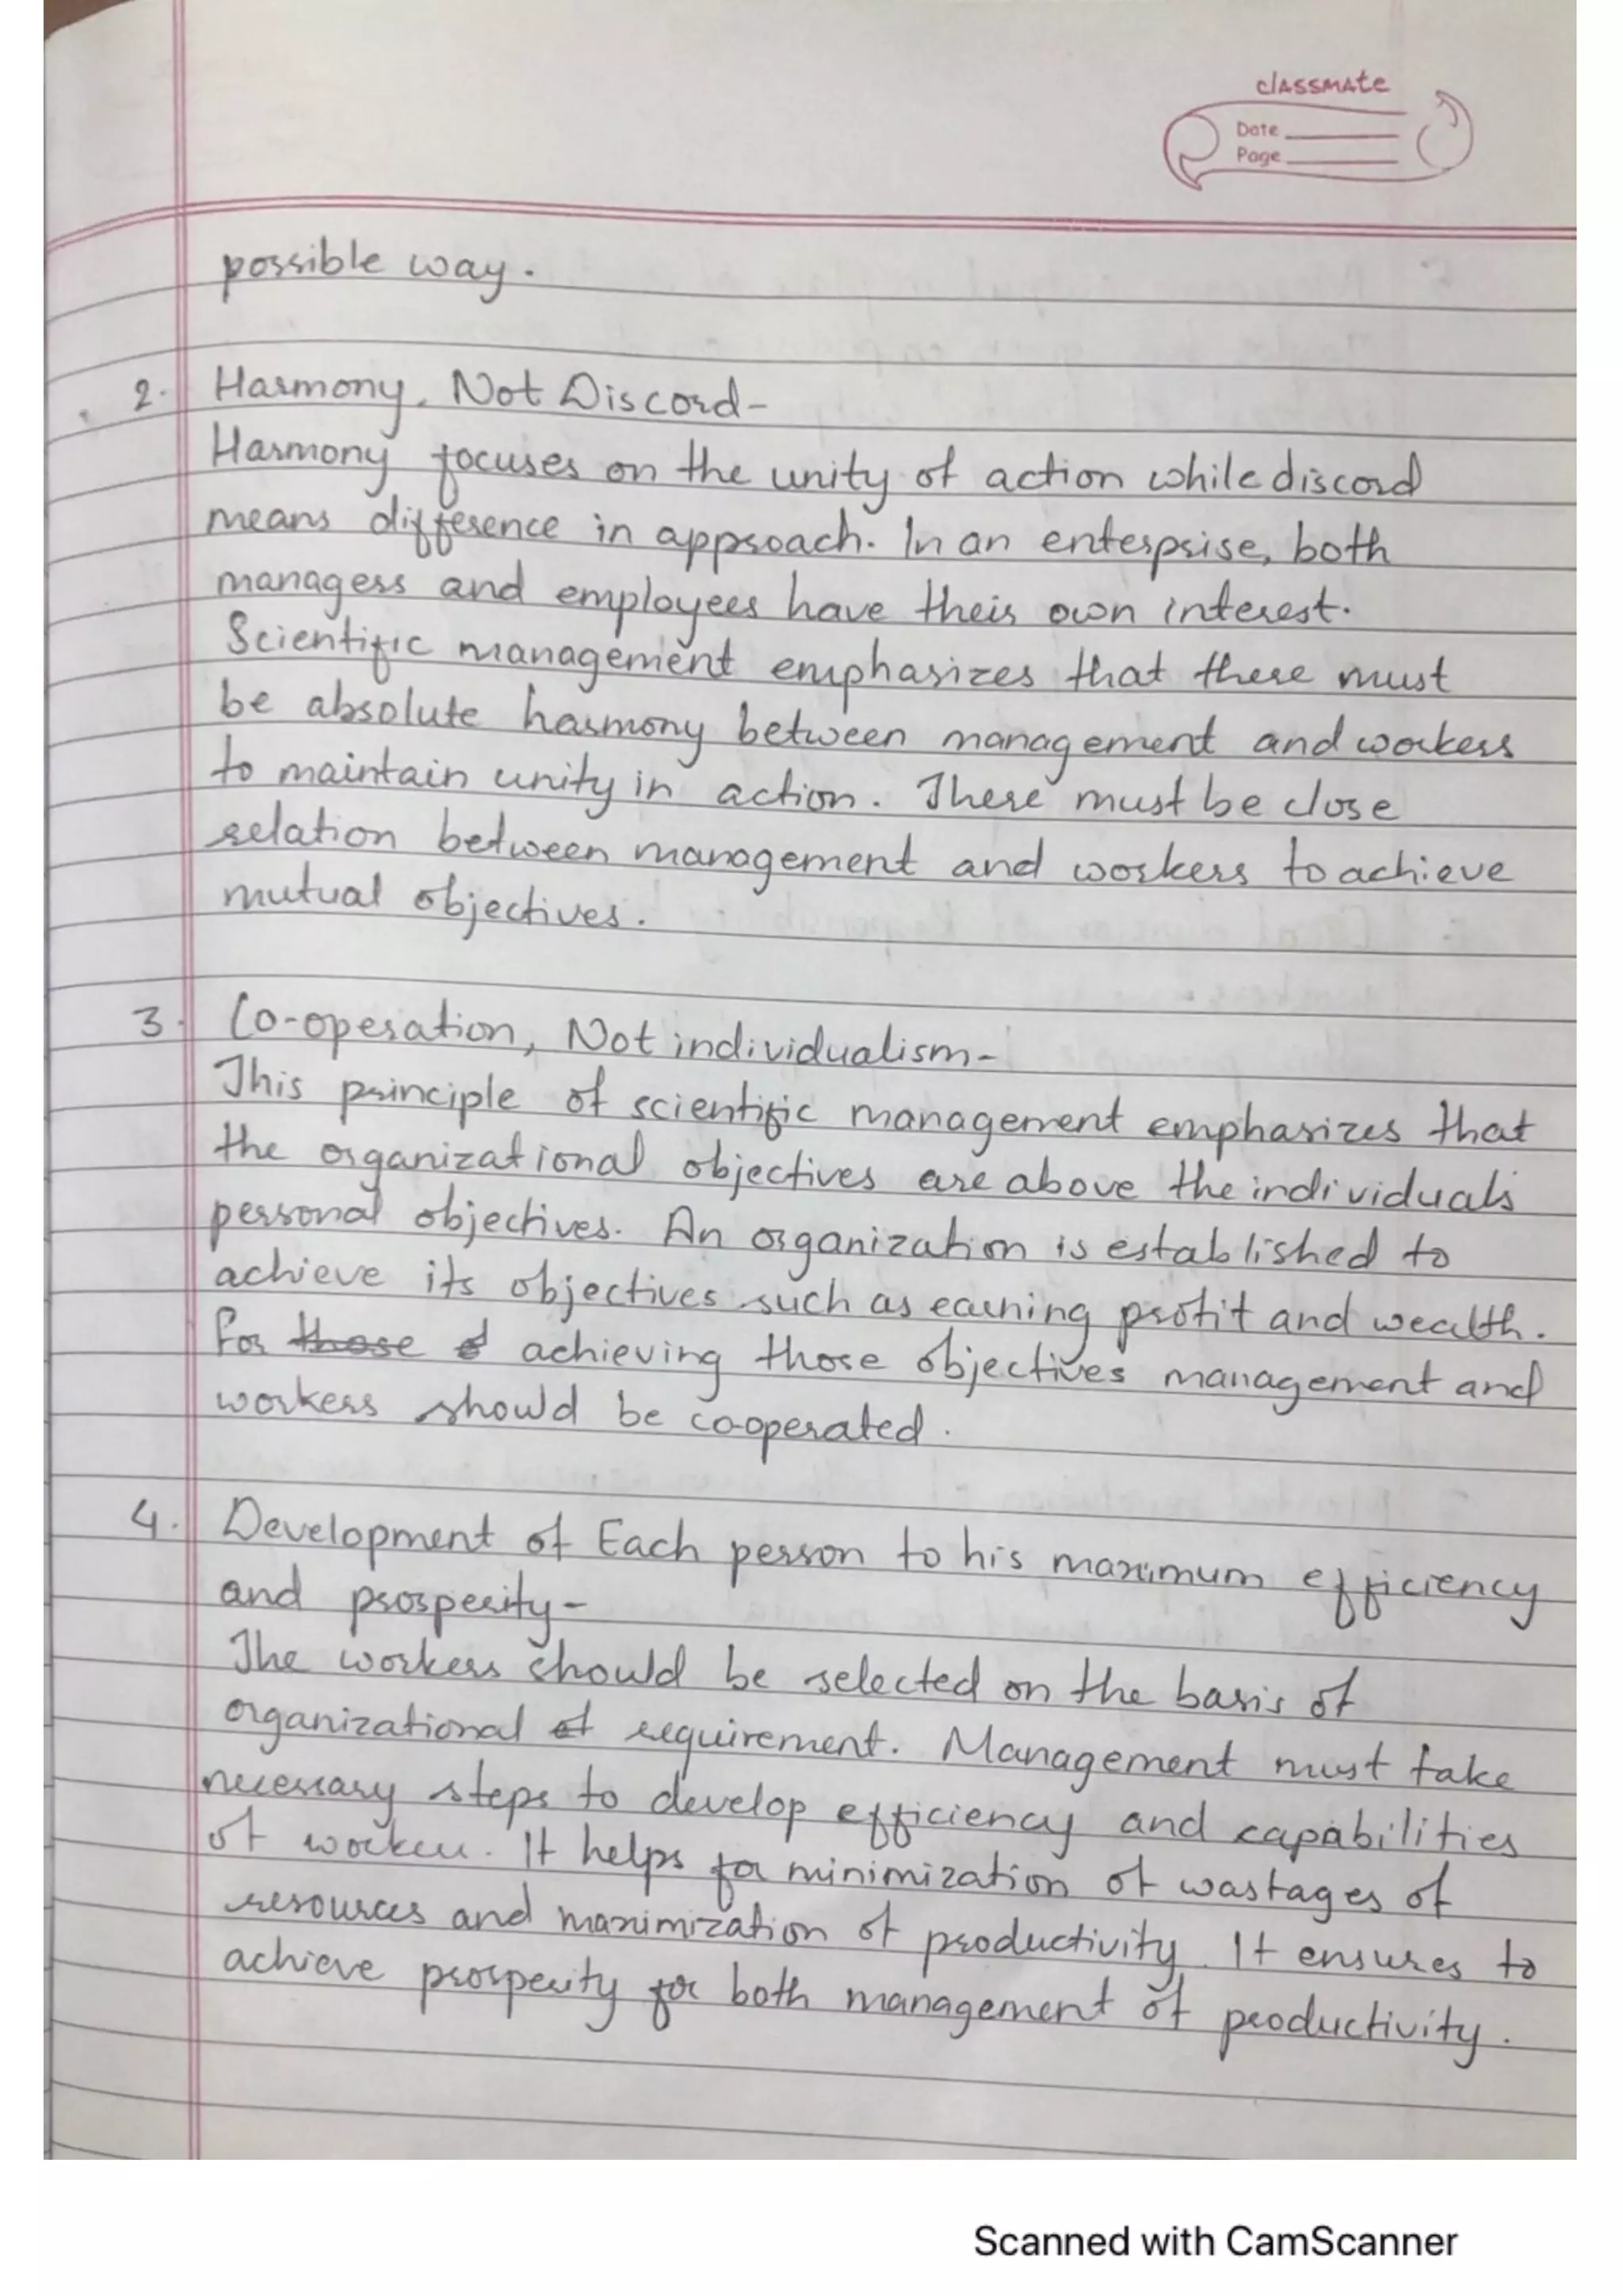 classmate
Date
Page
possible way.
2. Harmony, Not Discord-
Harmony focuses on the unity of action while discord
means difference in approach. In an enterprise, both
managers and employees have their own interest.
Scientific management emphasizes that there must
be absolute harmony between management and workers
to maintain unity in action. There must be close
relation between management and workers to achieve
mutual objectives.
3. Co-operation, Not individualism-
This principle of scientific management emphasizes that
the organizational objectives are above the individuals
personal objectives. An organization is established to
achieve its objectives such as earning profit and wealth.
For those achieving those objectives management and
workers should be co-operated.
4. Development of Each person to his maximum efficiency
and prosperity-
The workers should be selected on the basis of
organizational of requirement. Management must take
necessary steps to develop efficiency and capabilities
of workers. It helps for minimization of wastages of
resources and maximization of productivity. It ensures to
achieve prosperity for both management of productivity.
Scanned with CamScanner